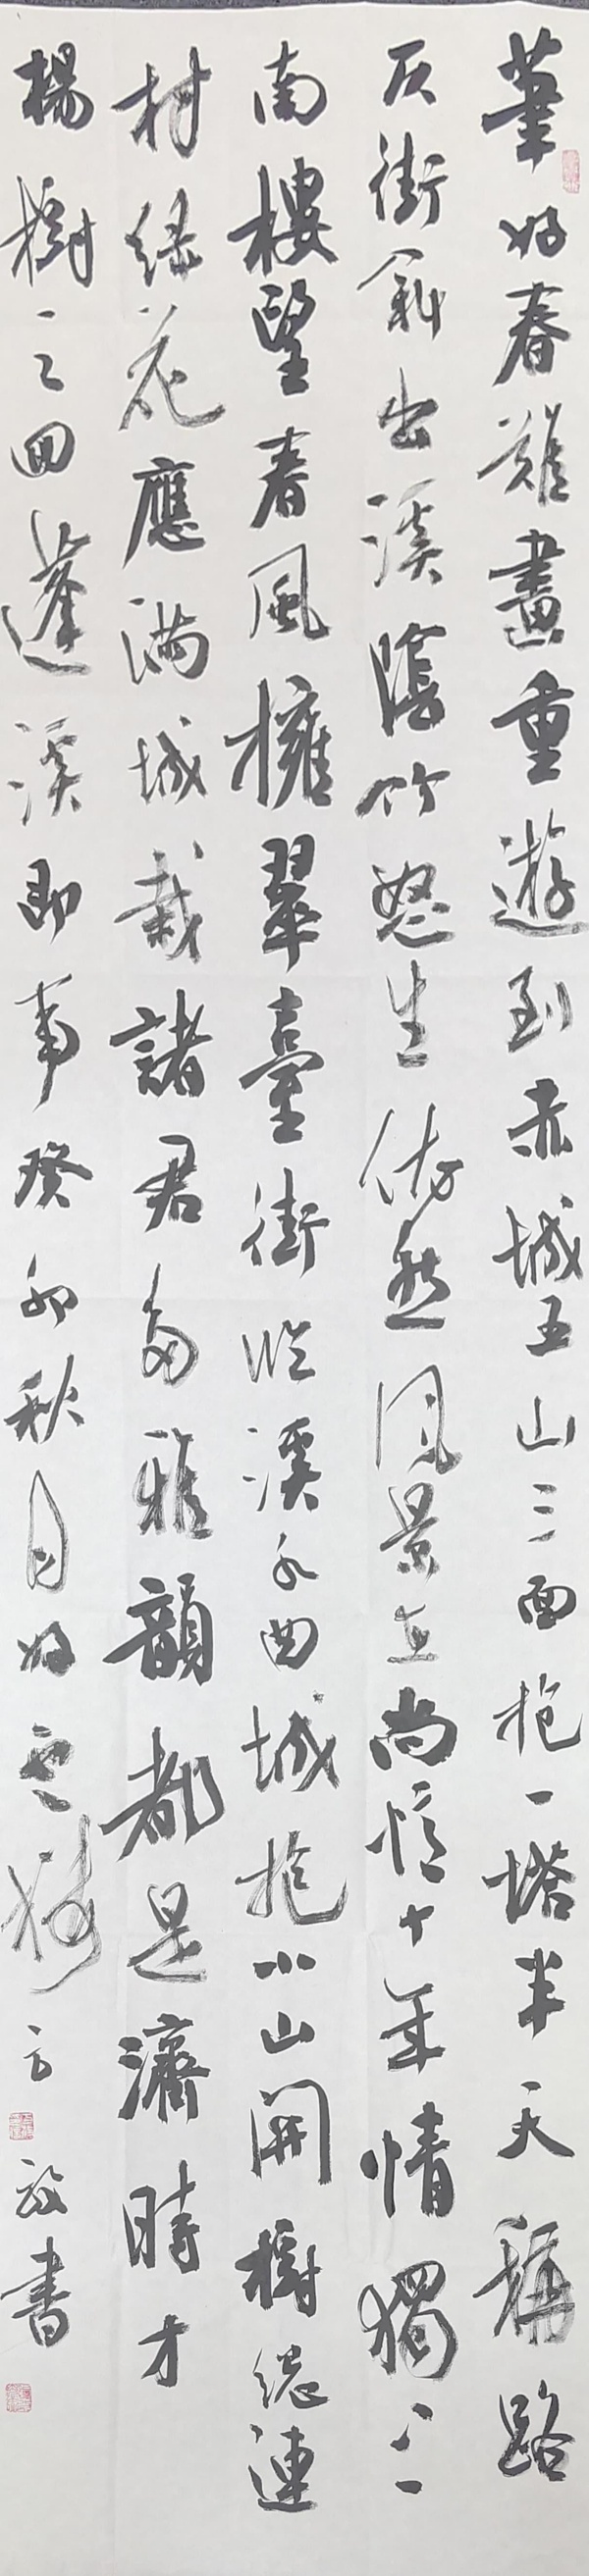 筆好春難畫重遊到赤城五山三面抱一塔半天路
仄街斜出溪陰竹怒生依然風景在尚憶十年情獨上
南樓望春風擁翠臺街臨溪水曲城抱小山開樹總連
村綠花應滿城栽諸君多雅韻都是濟時才
楊樹之回蓬溪即事癸卯秋月書